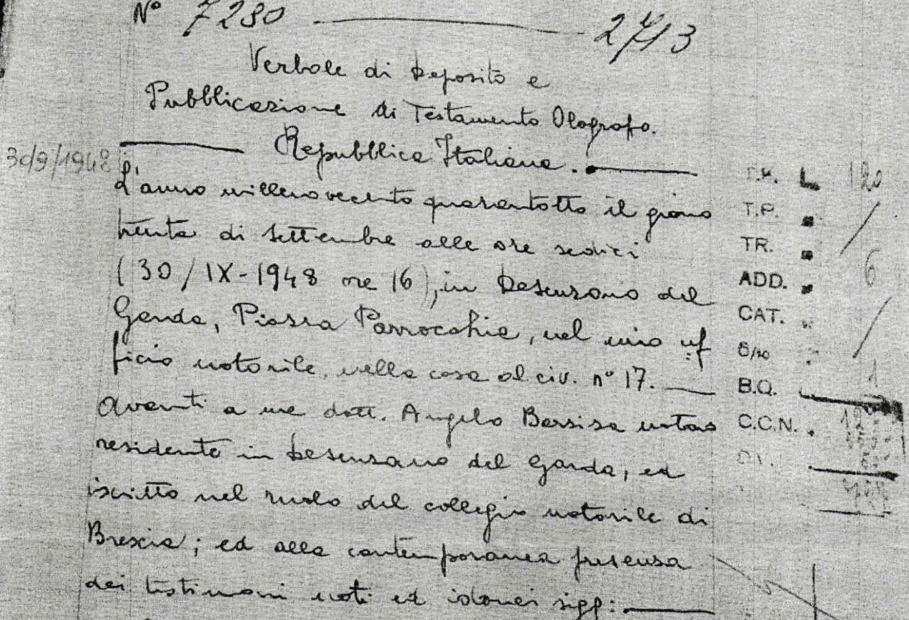 N° 7280 2713
Verbale di Deposito e
Pubblicazione di Testamento Olografo.
Repubblica Italiana.
30/9/1948
L'anno millenovecento quarantotto il giorno
trenta di settembre alle ore sedici
(30/IX-1948 ore 16), in Desenzano del
Garda, Piazza Parrocchia, nel mio uf
ficio notarile, nella casa al civ. n° 17.
Avanti a me dott. Angelo notaio
residente in Desenzano del Garda, ed
iscritto nel ruolo del collegio notarile di
Brescia; ed alla contemporanea presenza
dei testimoni noti ed idonei sigg:
T.P.
TR.
ADD. 6
CAT.
B.Q. 1
C.C.N.
120